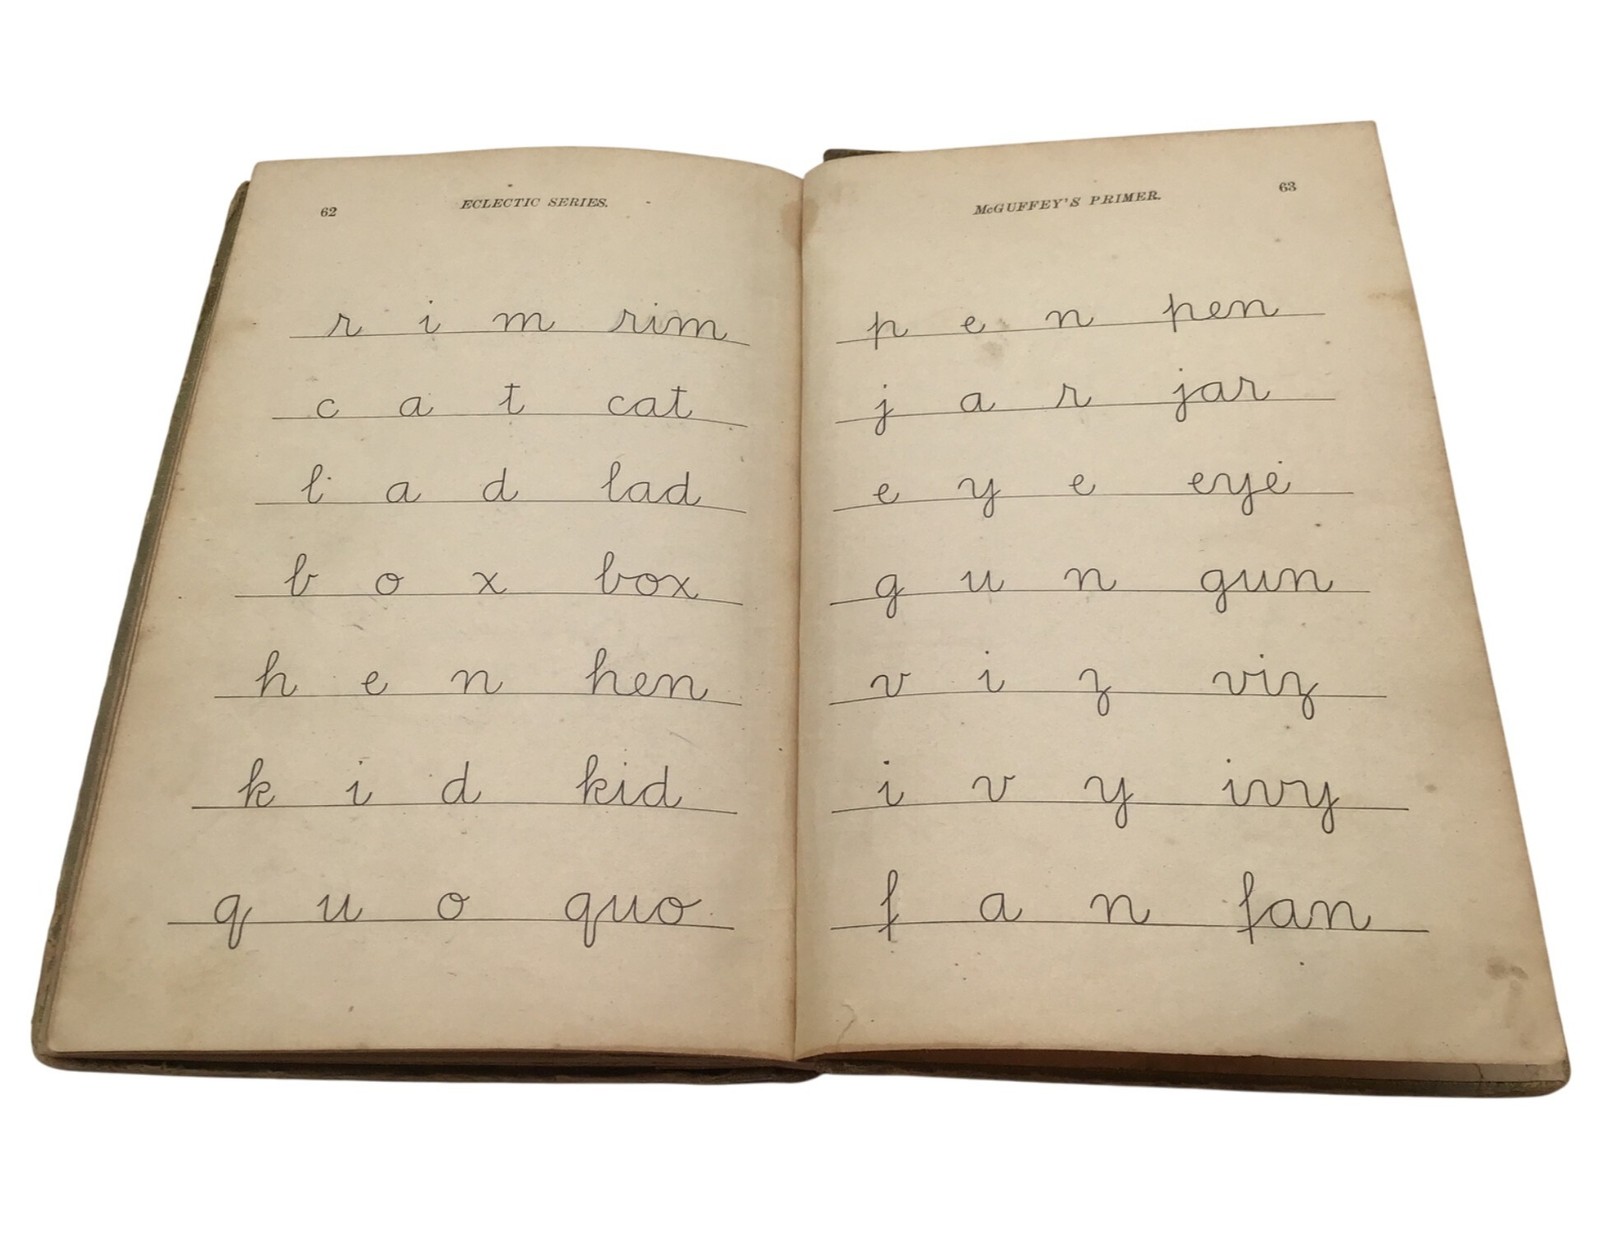 62 ECLECTIC SERIES.
r i m rim
c a t cat
l a d lad
b o x box
h e n hen
k i d kid
q u o quo
McGUFFEY'S PRIMER. 63
p e n pen
j a r jar
e y e eye
g u n gun
v i z viz
i v y ivy
f a n fan